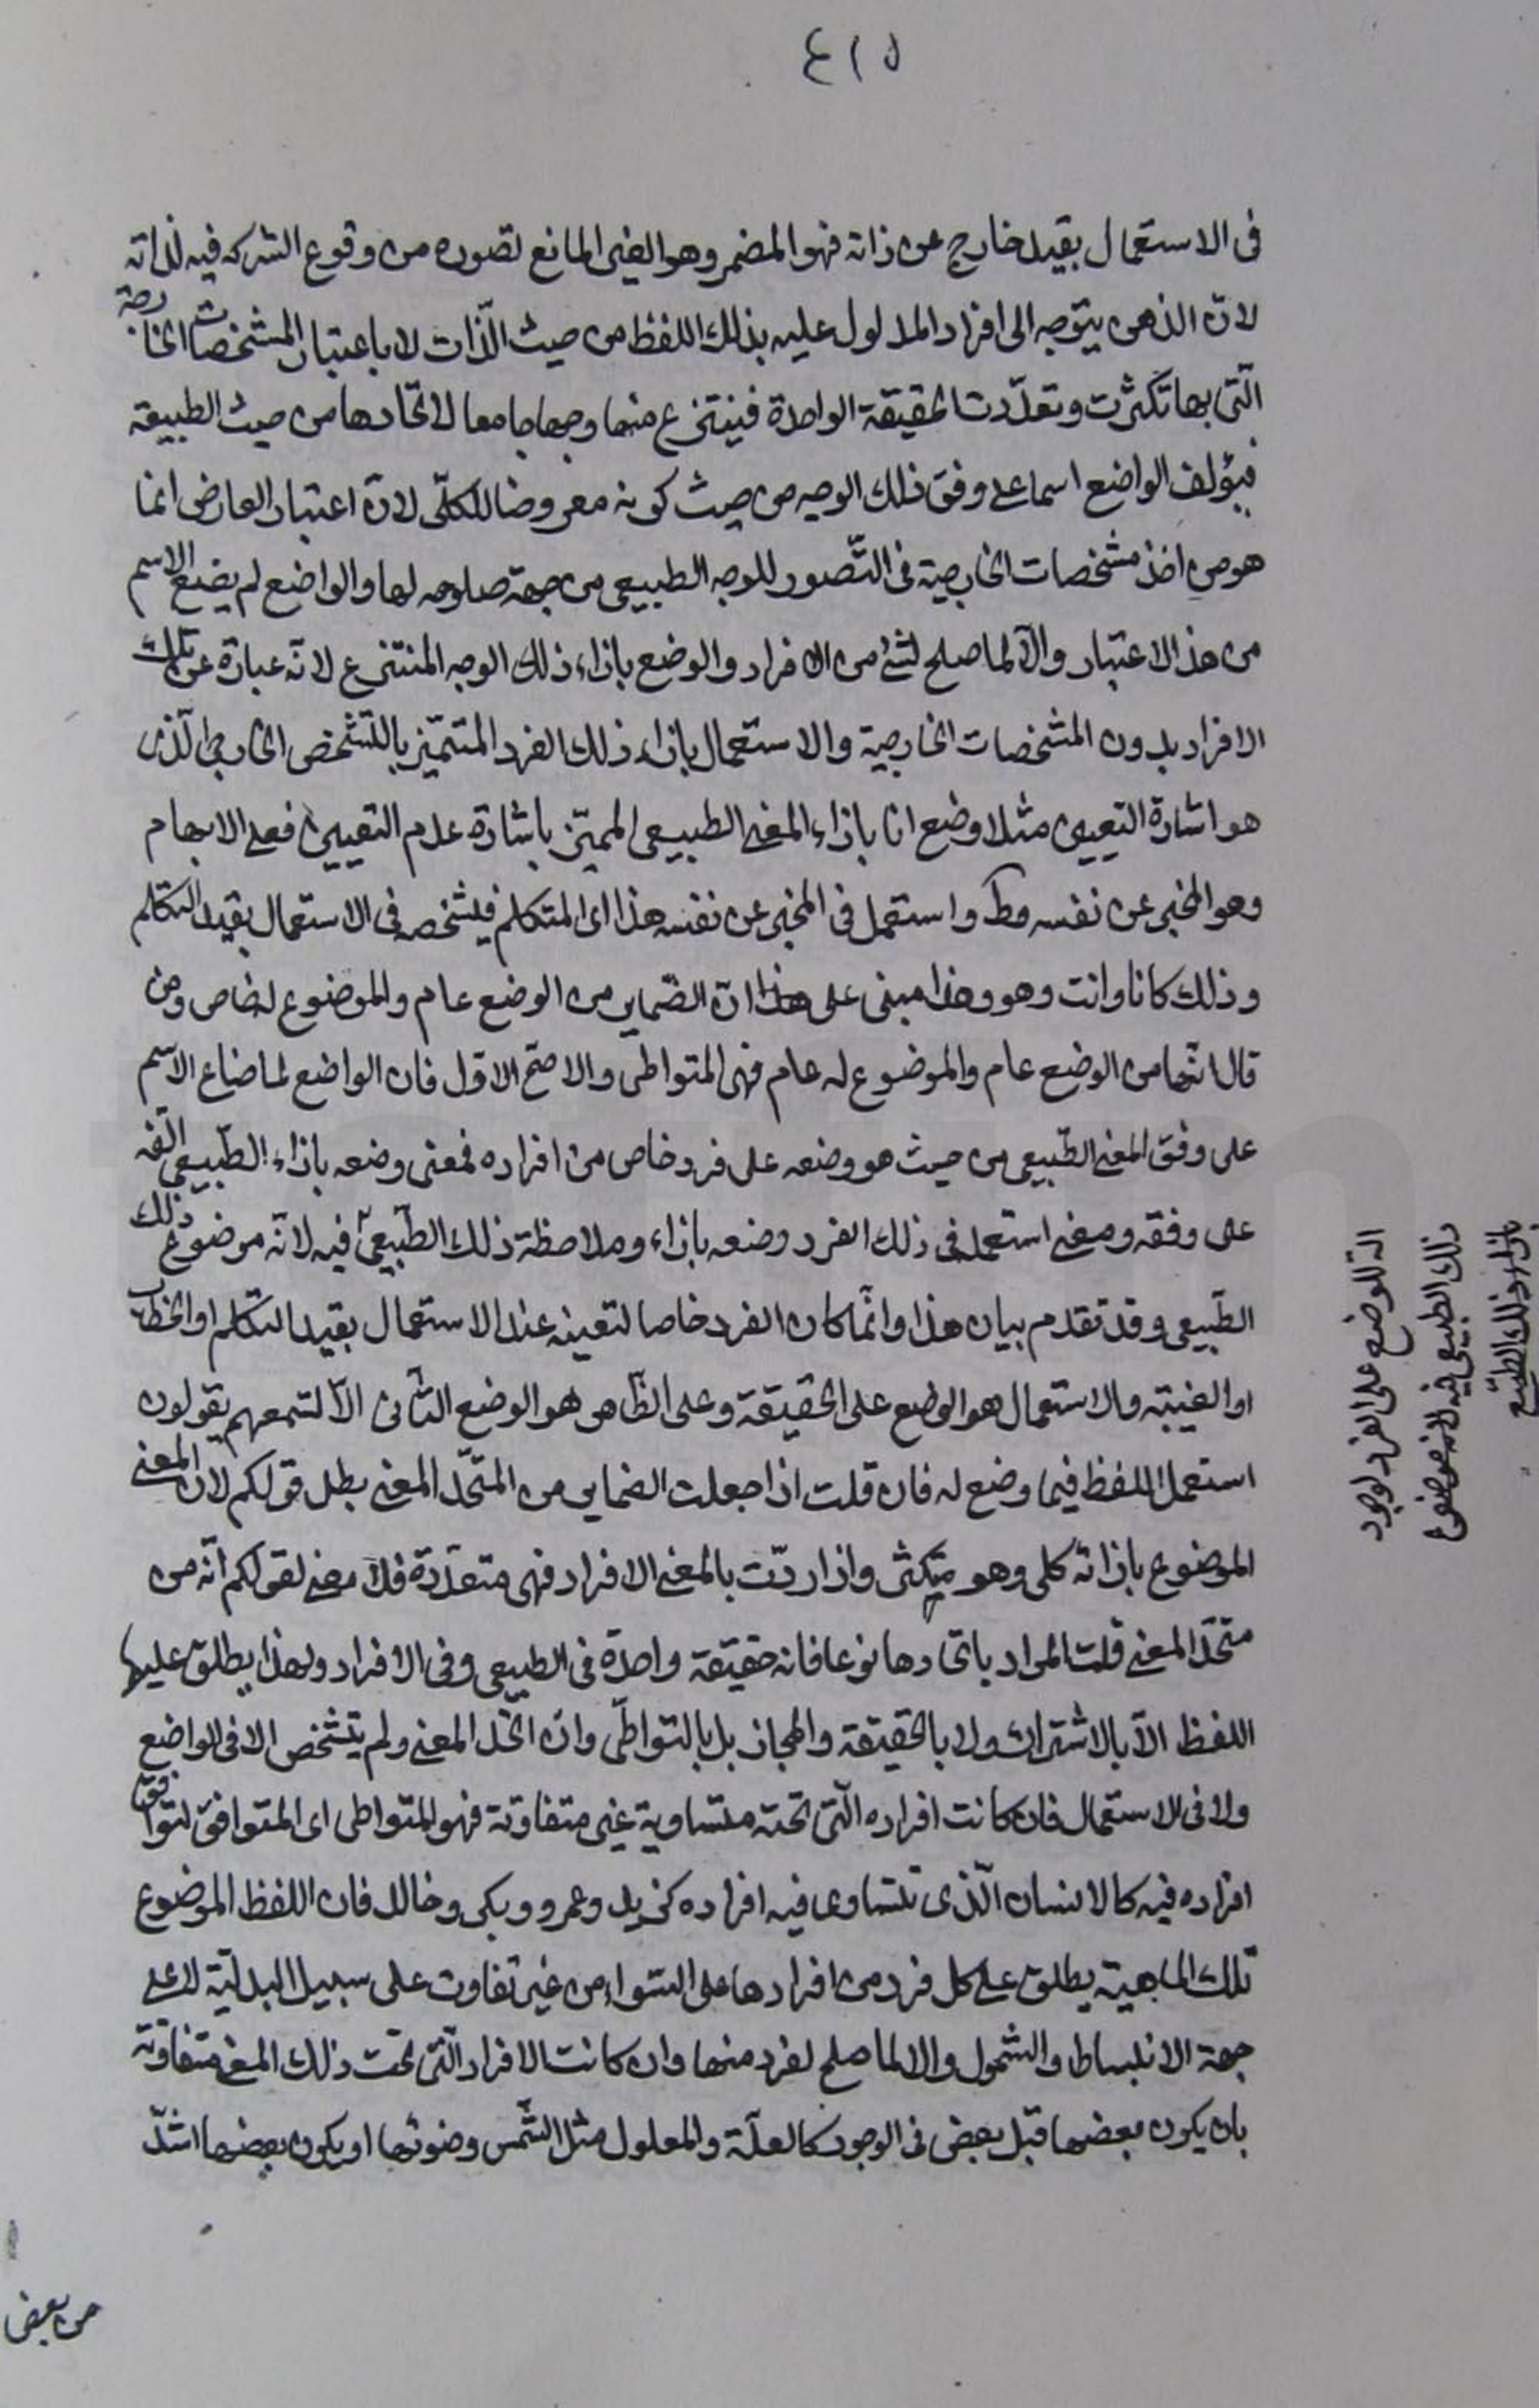 ٤١٥
فى الاستعمال بقيد خارج عن ذاته فهو المضمر وهو الغير المانع تصوره من وقوع الشركه فيه لذاته
لان الذهن يتوجه الى افراد المدلول عليه بذلك اللفظ من حيث الذّات لا باعتبار المشخصات الخارجة
الّتى بها تكثّرت وتعدّدت الحقيقة الواحدة فينتزع منها وجها جامعا لاتّحادها من حيث الطبيعة
فيؤلف الواضع اسما على وفق ذلك الوجه من حيث كونه معروضا للكلّى لانّ اعتبار العارض انما
هو من اخذ مشخصات الخارجية فى التّصور للوجه الطبيعى من جهة صلوحه لها والواضع لم يضع الاسم
من هذ الاعتبار والّا لما صلح لشئ من الافراد والوضع بازاء ذلك الوجه المنتزع لانّه عبارة عن تلك
الافراد بدون المشخصات الخارجية والاستعمال بازاء ذلك الفرد المتميّز بالتّشخص الخارجى الّذى
هو اشارة التعيين مثلا وضع انا بازاء المعنى الطبيعى المميّز باشارة عدم التعيين فعلى الابهام
وهو المخبر عن نفسه مط واستعمل فى المخبر عن نفسه هذا اى المتكلم فيشخصه فى الاستعمال بقيد التكلم
وذلك كانا وانت وهو وهذا مبنى على هذا انّ الضماير من الوضع عام والموضوع له خاص ومن
قال انّها من الوضع عام والموضوع له عام فهى المتواطى والاصحّ الاوّل فان الواضع لما صاغ الاسم
على وفق المعنى الطّبيعى من حيث هو وضعه على فرد خاص من افراده فمعنى وضعه بازاء الطّبيعى الّفه
على وفقه ومعنى استعمله فى ذلك الفرد وضعه بازاء وملاحظة ذلك الطّبيعىّ فيه لانّه موضوع ذلك
الطّبيعى وقد تقدم بيان هذا وانّما كان الفرد خاصا لتعينه عند الاستعمال بقيد التكلم او الخطاب
او الغيبة والاستعمال هو الوضع على الحقيقة وعلى الظّاهر هو الوضع الثّانى الا تسمعهم يقولون
استعمل اللفظ فيما وضع له فان قلت اذا جعلت الضماير من المتّحد المعنى بطل قولكم لان المعنى
الموضوع بازائه كلى وهو متكثر واذا اردّت بالمعنى الافراد فهى متعدّدة فلا معنى لقولكم انّه من
متحد المعنى قلت المراد باتحادها نوعا فانه حقيقة واحدة فى الطبيعى وفى الافراد ولهذا يطلق عليها
اللفظ الّا بالاشتراك ولا بالحقيقة والمجاز بل بالتواطى وان اتحد المعنى ولم يتشخص لا فى الواضع
ولا فى الاستعمال فان كانت افراده الّتى تحته متساوية غير متفاوتة فهو المتواطى اى المتوافق لتوافق
افراده فيه كالانسان الّذى تتساوى فيه افراده كزيد وعمرو وبكر وخالد فان اللفظ الموضوع
تلك الماهية يطلق على كل فرد من افرادها على السّواء من غير تفاوت على سبيل البدليّة لا على
جهة الانبساط والشمول والا لما صلح لفرد منها وان كانت الافراد الّتى تحت ذلك المعنى متفاوتة
بان يكون بعضها قبل بعض فى الوجود كالعلّة والمعلول مثل الشّمس وضوئها او يكون بعضها اشدّ
من بعض
الة للوضع على الفرد لوجود
ذلك الطبيعى فيه لانه موضوع
بازاء ذلك الطبيع